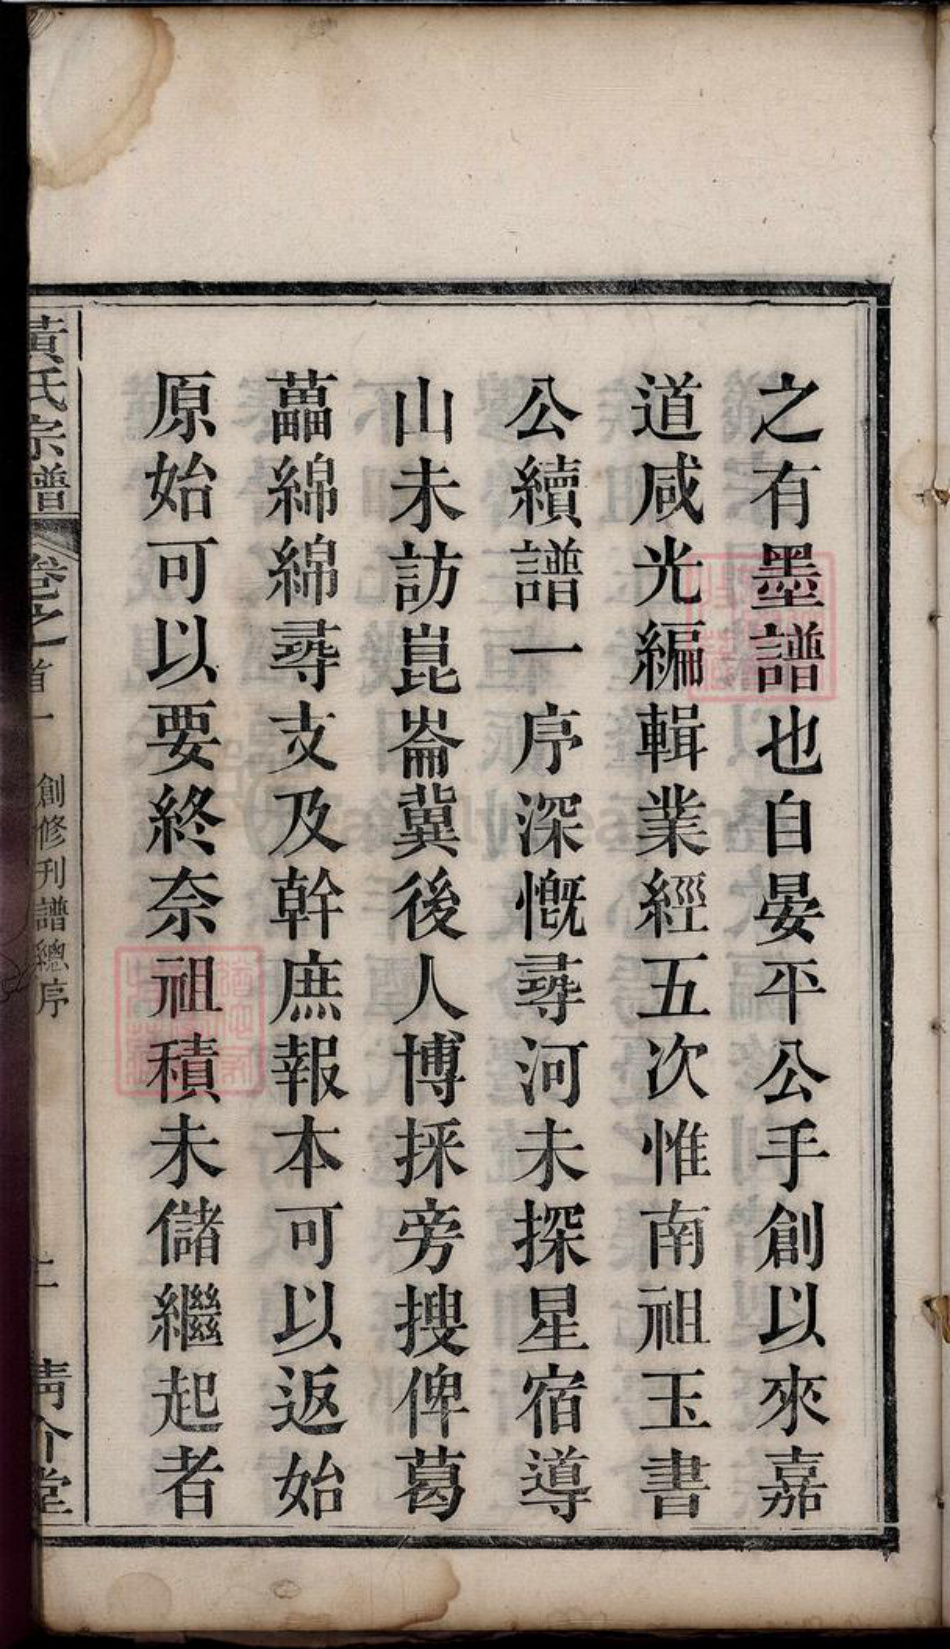 之有墨譜也自晏平公手創以來嘉
道咸光編輯業經五次惟南祖玉書
公續譜一序深慨尋河未探星宿導
山未訪崑崙冀後人博採旁搜俾葛
藟綿綿尋支及幹庶報本可以返始
原始可以要終奈祖積未儲繼起者
黃氏宗譜
卷之首一
創修刋譜總序
清介堂